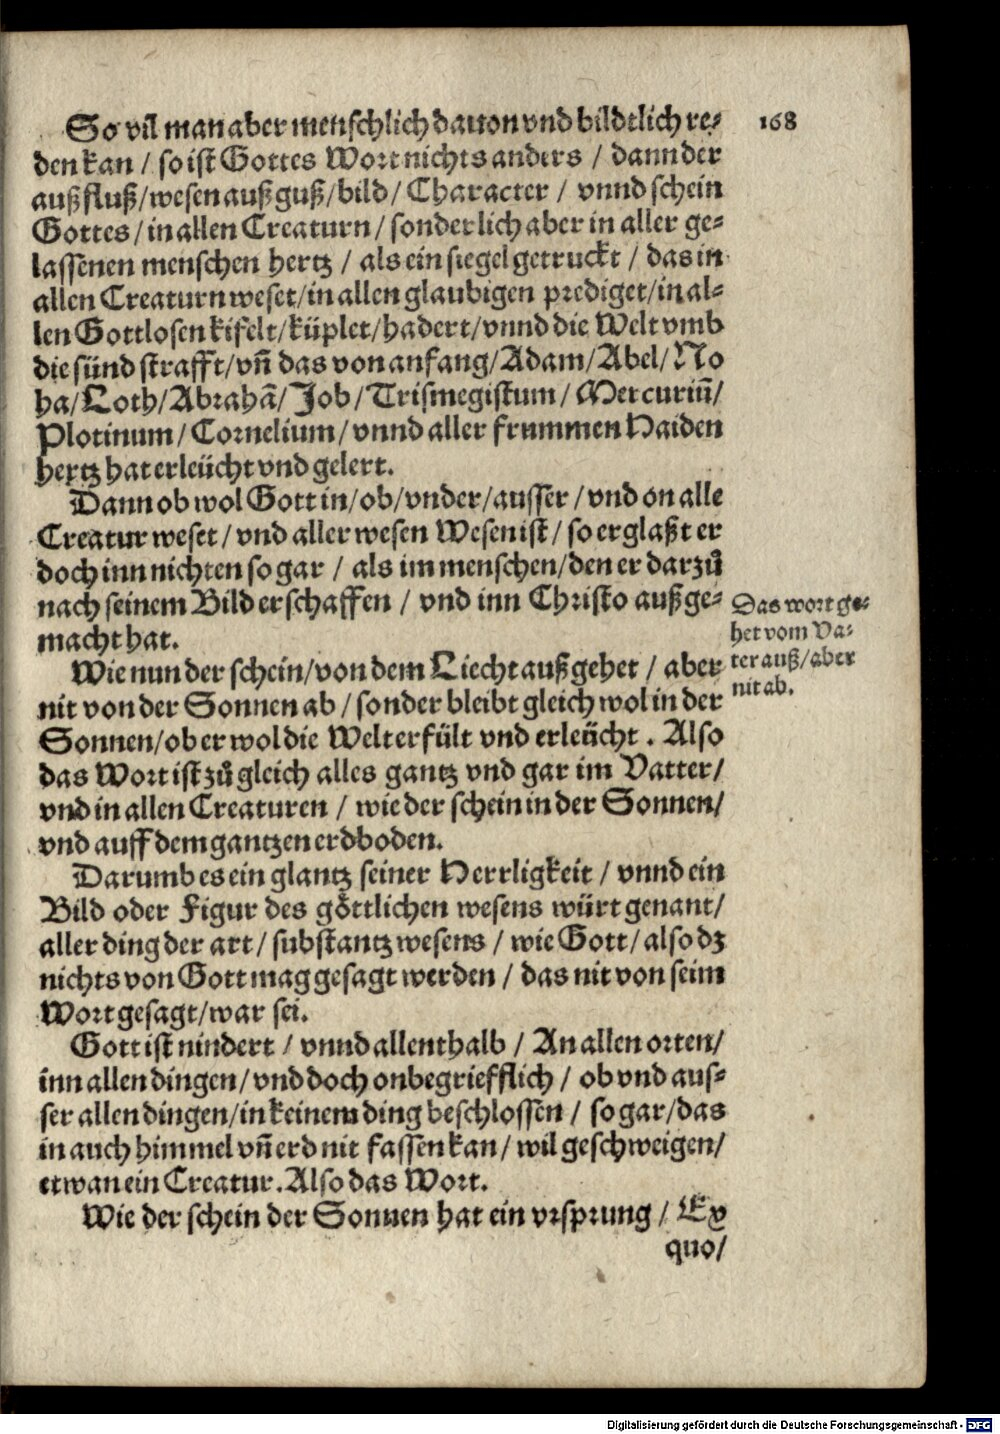 168
So vil man aber menschlich dauon vnd bildtlich re⸗
den kan / so ist Gottes Wort nichts anders / dann der
außfluß/wesen außguß/bild/ Character / vnnd schein
Gottes / in allen Creaturn / sonderlich aber in aller ge⸗
lassenen menschen hertz / als ein siegel getruckt / das in
allen Creaturn weset/in allen glaubigen prediget/in al⸗
len Gottlosen kifelt/küplet/hadert/vnnd die Welt vmb
die sünd strafft/vñ das von anfang/Adam/Abel/No
ha/Loth/Abrahã/Job/Trismegistum/Mercuriũ/
Plotinum/Cornelium/vnnd aller frummen Haiden
hertz hat erleücht vnd gelert.
Dann ob wol Gott in/ob/vnder/ausser/vnd on alle
Creatur weset/vnd aller wesen Wesen ist/so erglaßt er
doch inn nichten so gar / als im menschen/den er darzů
nach seinem Bild erschaffen / vnd inn Christo außge⸗
macht hat.
Das wort ge⸗
het vom Va⸗
ter auß/aber
nit ab.
Wie nun der schein/von dem Liecht außgehet / aber
nit von der Sonnen ab / sonder bleibt gleich wol in der
Sonnen/ob er wol die Welt erfült vnd erleücht. Also
das Wort ist zů gleich alles gantz vnd gar im Vatter/
vnd in allen Creaturen / wie der schein in der Sonnen/
vnd auff dem gantzen erdboden.
Darumb es ein glantz seiner Herrligkeit / vnnd ein
Bild oder Figur des göttlichen wesens würt genant/
aller ding der art/substantz wesens / wie Gott/also dz
nichts von Gott mag gesagt werden / das nit von seim
Wort gesagt/war sei.
Gott ist nindert / vnnd allenthalb / An allen orten/
inn allen dingen/vnd doch onbegriefflich / ob vnd aus⸗
ser allen dingen/in keinem ding beschlossen / so gar/das
in auch himmel vñ erd nit fassen kan/wil geschweigen/
etwan ein Creatur. Also das Wort.
Wie der schein der Sonnen hat ein vrsprung / Ex
quo/
Digitalisierung gefördert durch die Deutsche Forschungsgemeinschaft - DFG